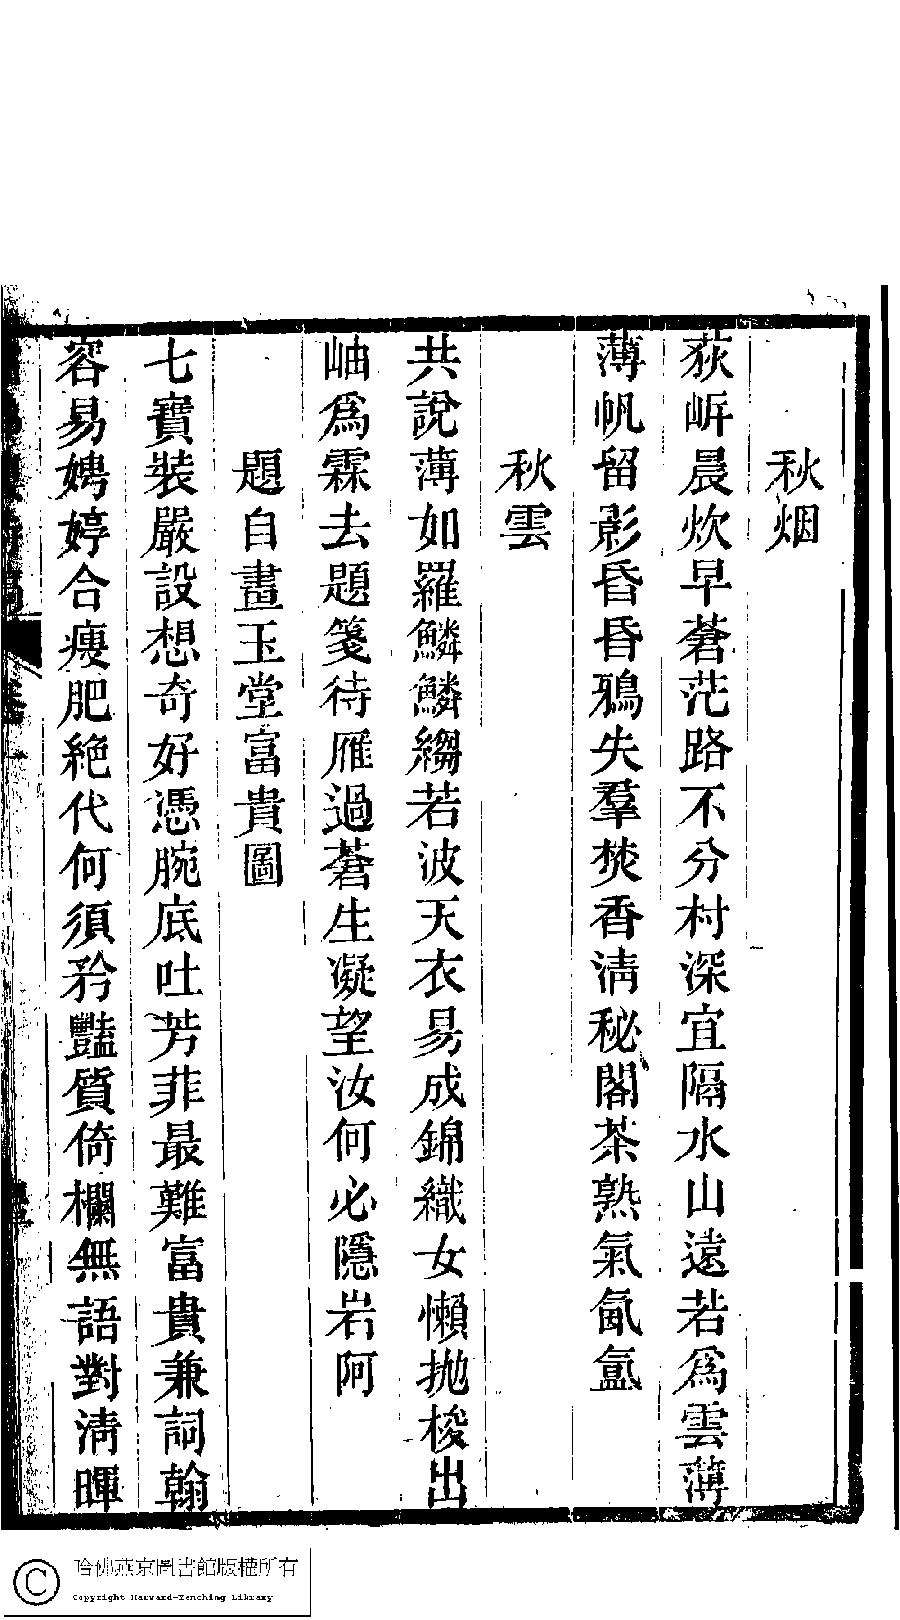 秋烟
荻岸晨炊早蒼茫路不分村深宜隔水山遠若爲雲薄
薄帆留影昏昏鴉失羣焚香淸秘閣茶熟氣氤氳
秋雲
共說薄如羅鱗鱗縐若波天衣易成錦織女懶抛梭出
岫爲霖去題箋待雁過蒼生凝望汝何必隱岩阿
題自畫玉堂富貴圖
七寶裝嚴設想奇好憑腕底吐芳菲最難富貴兼詞翰
容易娉婷合瘦肥絕代何須矜豔質倚欄無語對淸暉
哈佛燕京圖書館版權所有
Copyright Harvard-Yenching Library